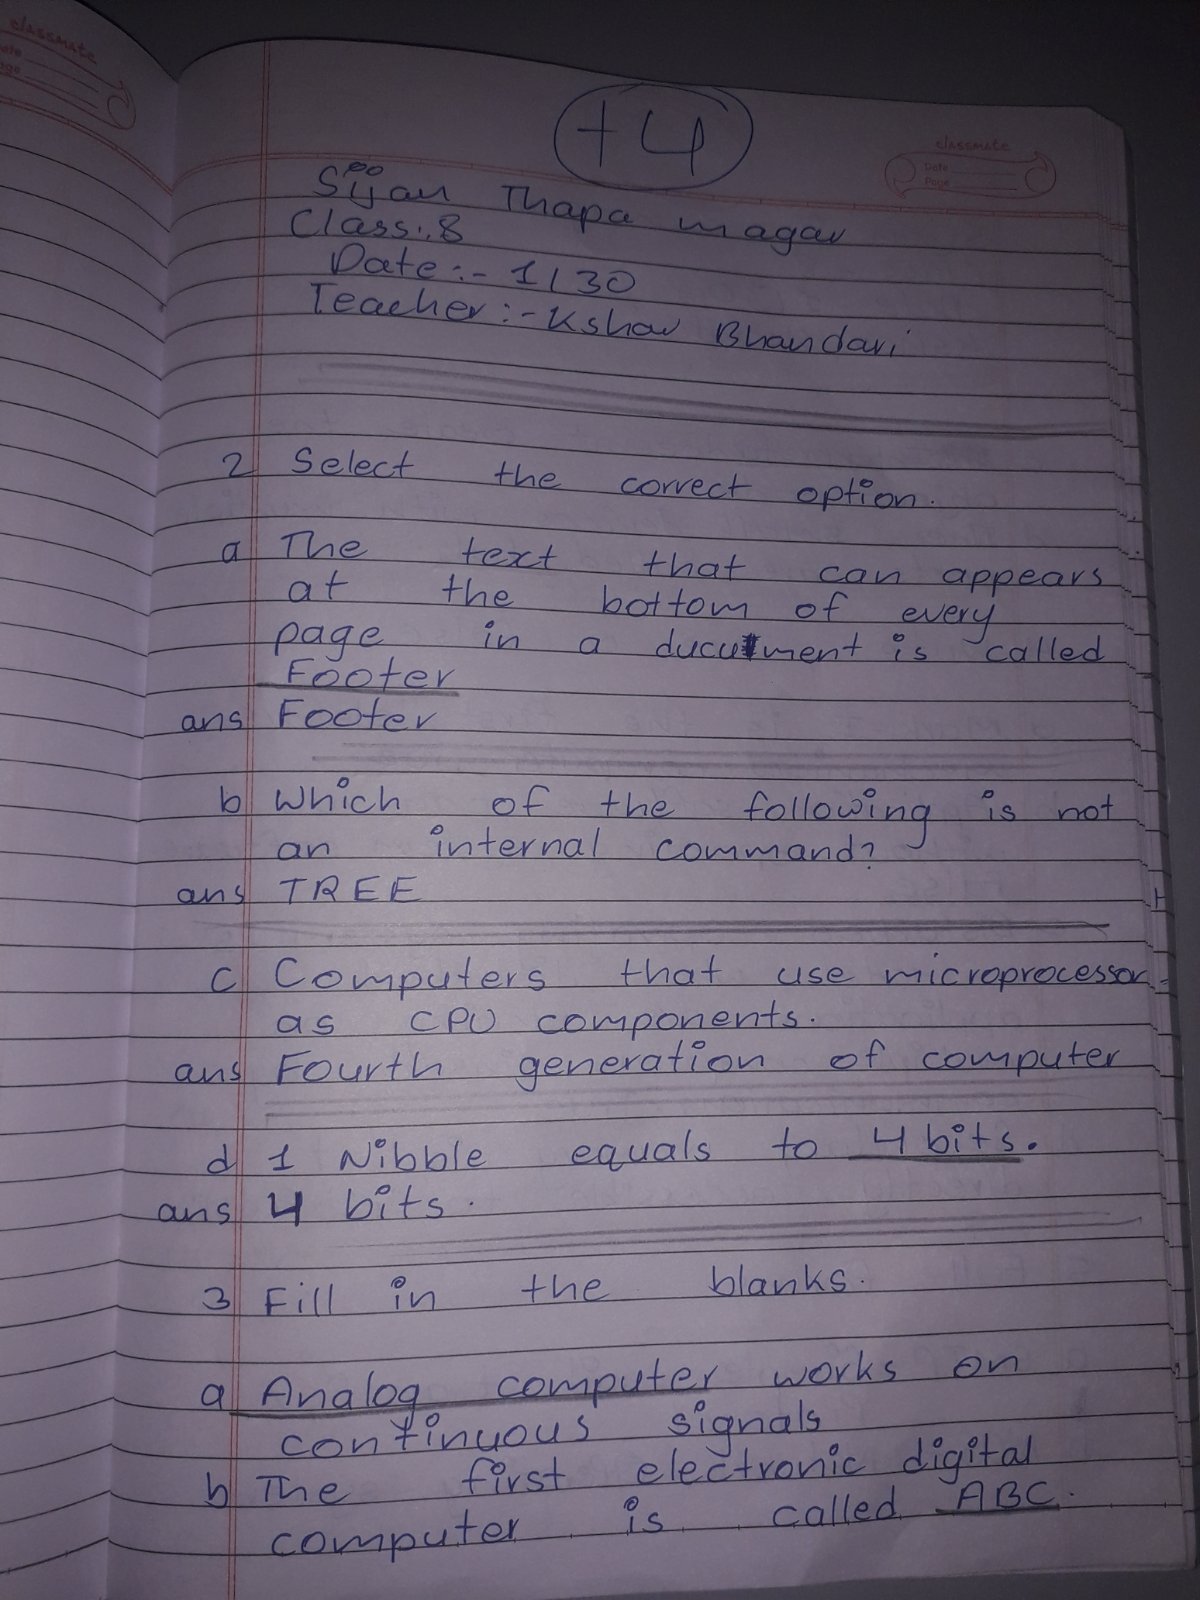 classmate
Date
Page
+4
classmate
Date
Page
Sijan Thapa magar
Class:.8
Date:-1/30
Teacher:-Kshav Bhandari
2 Select the correct option.
a The text that can appears
at the bottom of every
page in a ducument is called
Footer
ans Footer
b Which of the following is not
an internal command?
ans TREE
c Computers that use microprocessor
as CPU components.
ans Fourth generation of computer
d 1 Nibble equals to 4 bits.
ans 4 bits.
3 Fill in the blanks.
a Analog computer works on
continuous signals
b The first electronic digital
computer is called ABC.